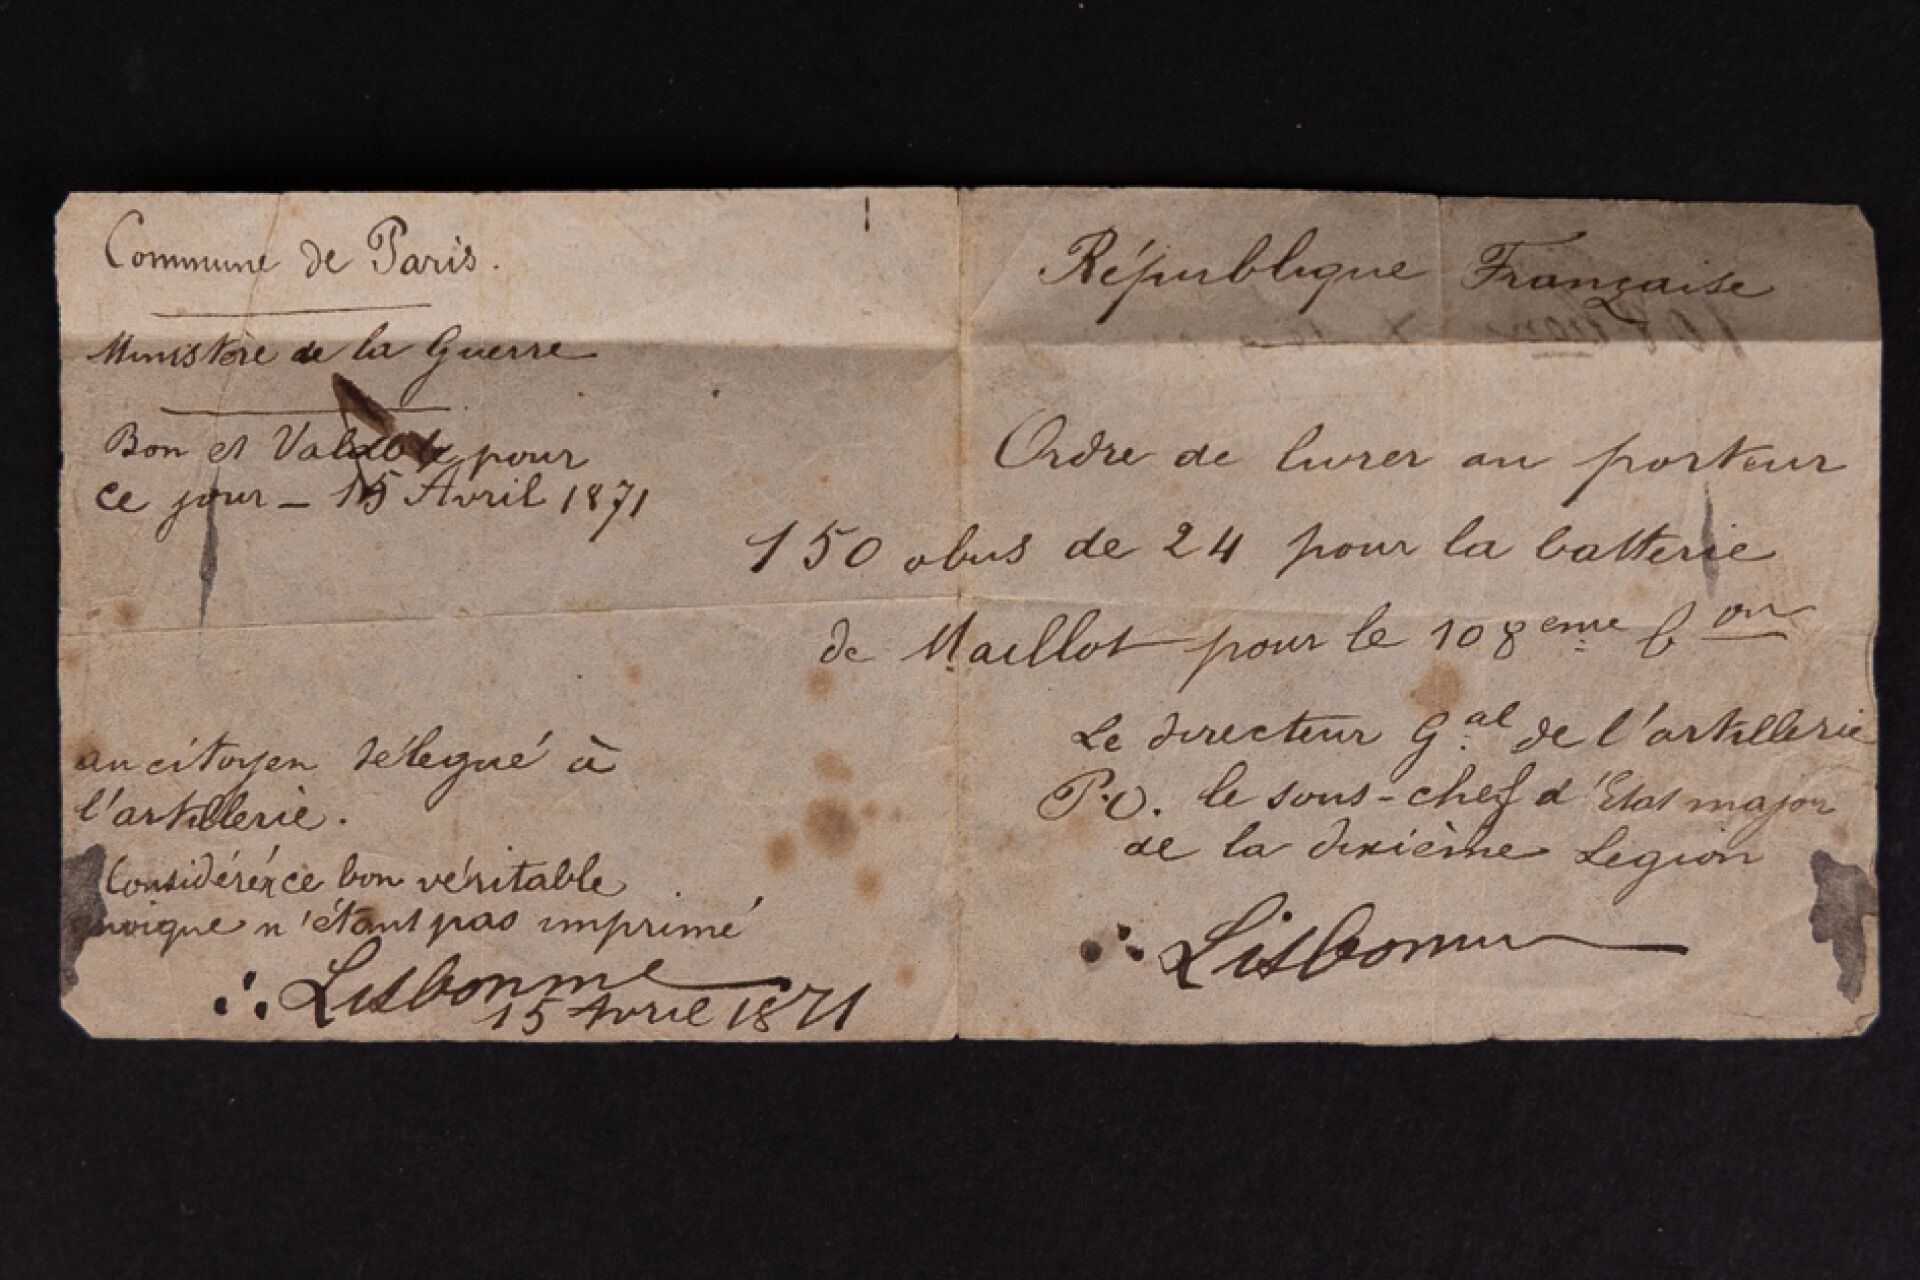 Commune de Paris.
Ministère de la Guerre
Bon et Valable pour
ce jour – 15 Avril 1871
République Française
Ordre de livrer au porteur
150 obus de 24 pour la batterie
de Maillot pour le 108eme bon
Le directeur Gal de l'artillerie
P.O. le sous-chef d'Etat major
de la dixième Légion
∴ Lisbonne
au citoyen délégué à
l'artillerie.
Considérér ce bon véritable
quoique n'étant pas imprimé
∴ Lisbonne
15 Avril 1871